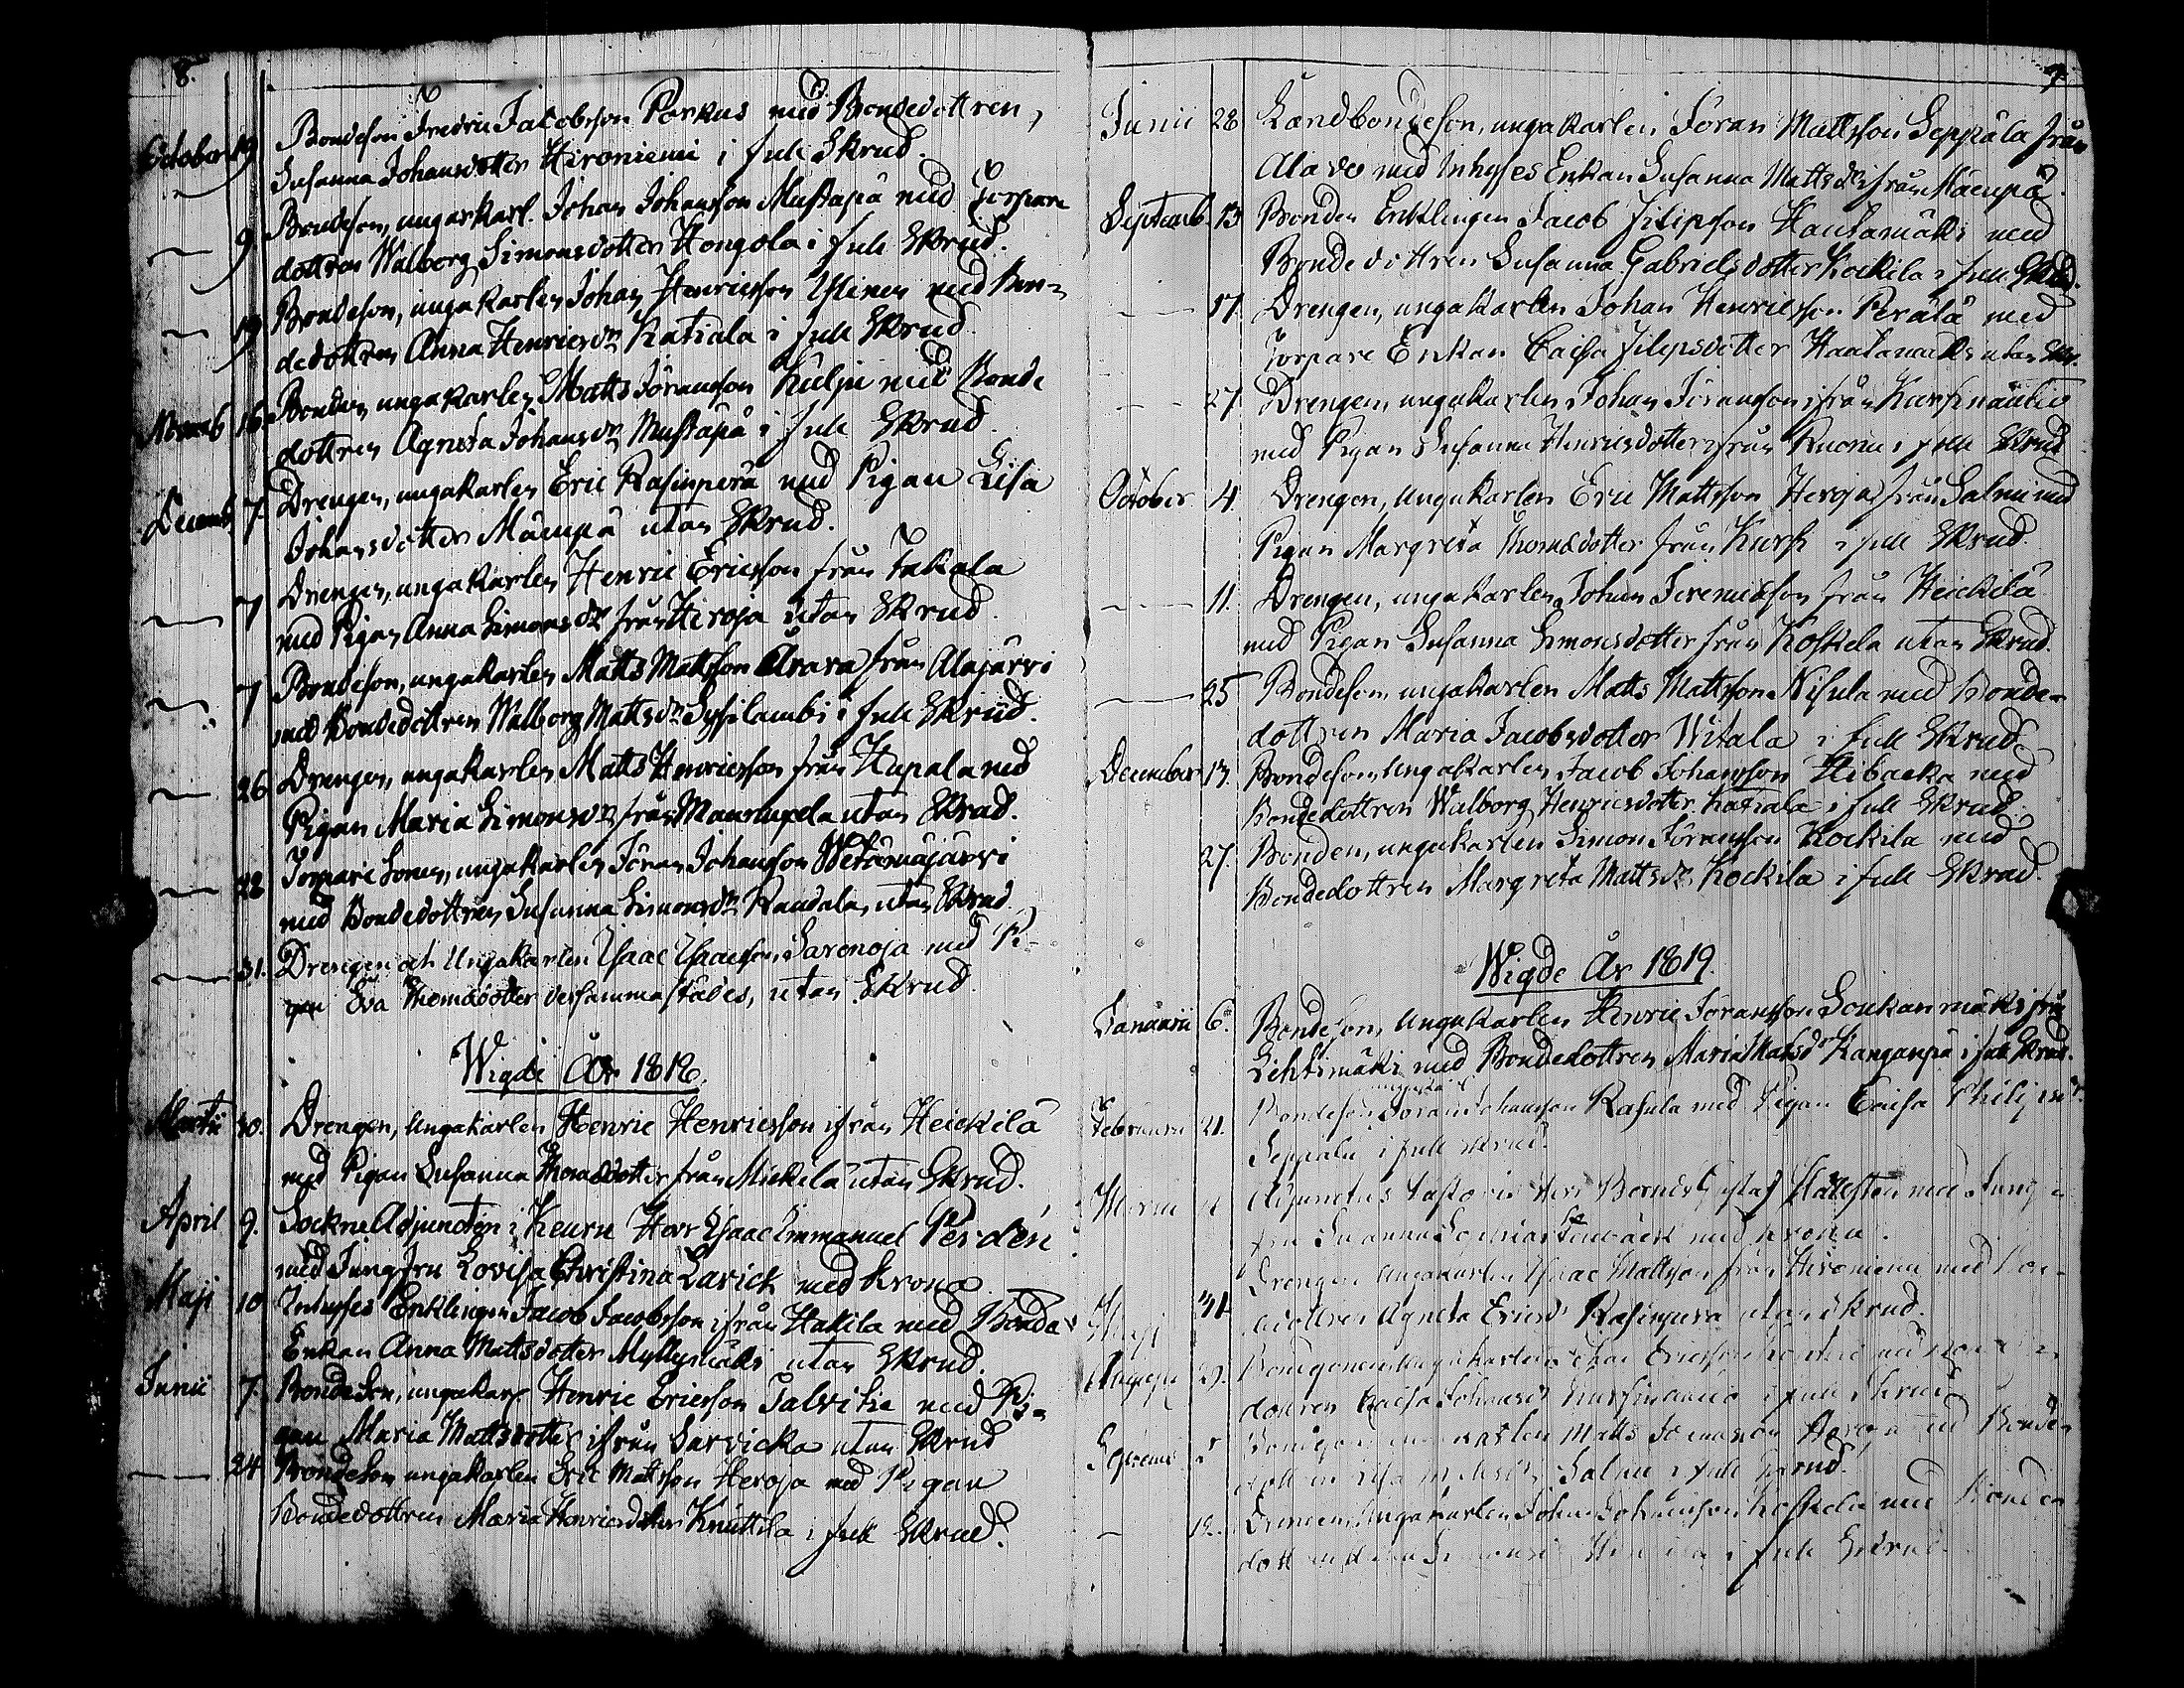 8.
October 19 Bondeson Fredric Jacobsson Porkus med Bondedottren,
Susanna Johansdotter Hironiemi i full Skrud.
— 9 Bondeson, ungarkarl. Johan Johansson Mustapä med Torpare
dottren Walborg Simonsdotter Hongola i full Skrud.
— 19 Bondeson, ungakarlen Johan Henricsson Ylinen med Bon=
dedottren Anna Henricsdr Katiala i full Skrud
Novemb 16. Bonden, ungakarlen Matts Jöransson Kulju med Bonde
dottren Agneta Johansdr Mustapä i full Skrud.
Decemb. 7. Drengen, ungakarlen Eric Rasinperä med Pigan Lisa
Johansdotter Mäenpä utan Skrud.
— 7 Drengen, ungakarlen Henric Ericsson från Takala
med Pigan Anna Simonsdr från Heroja utan Skrud.
— 7 Bondeson, ungakarlen Matts Mattsson Årara från Alajärvi
med Bondedottren Walborg Mattsdr Sysilambi i full Skrud.
— 26 Drengen, ungakarlen Matts Henricsson från Hapala med
Pigan Maria Simonsdr från Maunupela utan Skrud.
— 28 Torpare Sonen, ungakarlen Jöran Johansson Wetämäjärvi
med Bondedottren Susanna Simonsdr Raudala, utan Skrud.
— 31. Drengen och Ungakarlen Isaac Isaacsson Sarenoja med Pi-
gan Eva Thomædotter dersammastädes, utan Skrud.
Wigde År 1818.
Martii 30. Drengen, Ungakarlen Henric Henricsson ifrån Heickilä
med Pigan Susanna Thomædotter från Mickilä utan Skrud.
April 9. Sockne Adjuncten i Keuru Herr Isaac Emmanuel Perdén
med Jungfru Lovisa Christina Lavick med Krona.
Maji 10 Inhyses Enklingen Jacob Jacobsson ifrån Hakila med Bonde
Enkan Anna Mattsdotter Myllymäki utan Skrud.
Junii 7. BondeSon, ungakarl. Henric Ericsson Talvitie med Pi=
gan Maria Mattsdotter ifrån Sarvicka utan Skrud
— 24 BondeSon ungakarlen Eric Mattsson Heroja med Pigan
Bondedottren Maria Henricsdotter Knuttila i full Skrud.
9.
Junii 28 Landbondeson, ungakarlen Jöran Mattsson Seppälä från
Alavo med Inhyses Enkan Susanna Mattsdr från Mäenpä.
Septemb. 13 Bonden Enklingen Jacob Filipsson Hautamäki med
Bondedottren Susanna Gabrielsdotter Kockila i full Skrud.
— 17. Drengen, ungakarlen Johan Henricsson Perälä med
Torpare Enkan Caisa Filipsdotter Hautamäki utan Skr.
— 27. Drengen, ungakarlen Johan Jöransson ifrån Kursinautio
med Pigan Susanna Henricsdotter från Ruona i full Skrud
October 4. Drengen, Ungakarlen Eric Mattsson Heroja från Salmi med
Pigan Margreta Thomædotter från Kursi i full Skrud
— 11. Drengen, ungakarlen Johan Jeremiasson från Heickilä
med Pigan Susanna Simonsdotter från Koskela utan Skrud.
— 25 Bondeson, ungakarlen Matts Mattsson Nisula med Bonde=
dottren Maria Jacobsdotter Witala i full Skrud.
December 13. Bondeson, Ungakarlen Jacob Johansson Hibacka med
Bondedottren Walborg Henricsdotter Katiala i full Skrud.
27. Bonden, ungakarlen Simon Jöransson Kockila med
Bondedottren Margreta Mattsdr Kockila i full Skrud.
Wigde År 1819.
Januarii 6. Bondeson, Ungakarlen Henric Jöransson Soukanmäki från
Lehtimäki med Bondedottren Maria Mattsdr Kangaspä i full Skrud.
Februarii 21. Bondeson ungakarl Jöran Johansson Rasula med Pigan Caisa Philipsdr
Seppälä i full skrud.
Adjunctus Pastoris Herr Gustaf Hällsten med Jung-
fru Susanna med krona.
31. Drengen Ungakarlen Isaac Mattsson från Hironiemi med Bon-
dedottren Agneta Ericsdr Rasinperä utan skrud.
Augusti 29. Ericsson med
dottren Caisa Johansdr Kursinautio i full skrud
Matts Heroja med Bonde
Salmi i full skrud.
— 12. Drengen, Ungakarlen Johan Johansson Koskela med Bonde
i full Skrud.